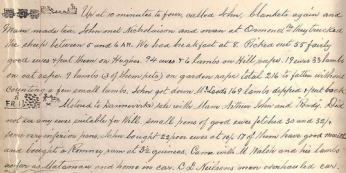 Up at 10 minutes to four, called John; blankets again and
Mum made tea. John met Nicholson and men at Ormond. They trucked
the sheep between 5 and 6 AM. We had breakfast at 8. Picked out 55 fairly
good ewes & put them on Hogies. 94 ewes & 6 lambs on Hill rape. 19 ewes 33 lambs
on rape. 9 lambs (3 of them pets) on garden rape total 216 to fatten without
counting a few small lambs. John got down 169 lambs dipped & put back.
FR 1 Motored to Dannevirke sale with Mum Arthur John and Hardy. Did
not see any ewes suitable for Hill. small pens of good ewes fetched 30 and 32/-
some very inferior pens. John bought 22 poor ewes at 17 of them have good mouths
and bought a Romney ram at 3½ guineas. Came with M Walsh and his lambs
as far as Matamau and home in car. C L Neilsons men overhauled car.